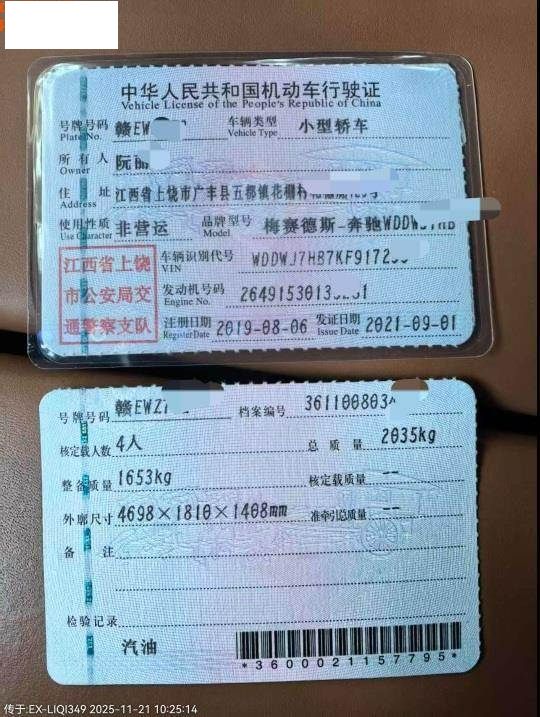 中华人民共和国机动车行驶证
Vehicle License of the People's Republic of China
号牌号码 赣EW 车辆类型 小型轿车
Plate No. Vehicle Type
所有人 阮
Owner
住址 江西省上饶市广丰县五都镇花棚村
Address
使用性质 非营运 品牌型号 梅赛德斯-奔驰WDDW
Use Character Model
江西省上饶市公安局交通警察支队
车辆识别代号 WDDWJ7HB7KF9172
VIN
发动机号码 2649153013
Engine No.
注册日期 2019-08-06 发证日期 2021-09-01
Register Date Issue Date
号牌号码 赣EWZ 档案编号 361100803
核定载人数 4人 总质量 2035kg
整备质量 1653kg 核定载质量 --
外廓尺寸 4698×1810×1408mm 准牵引总质量 --
备注
检验记录
汽油
*3600021157795*
传于:EX-LIQI349 2025-11-21 10:25:14